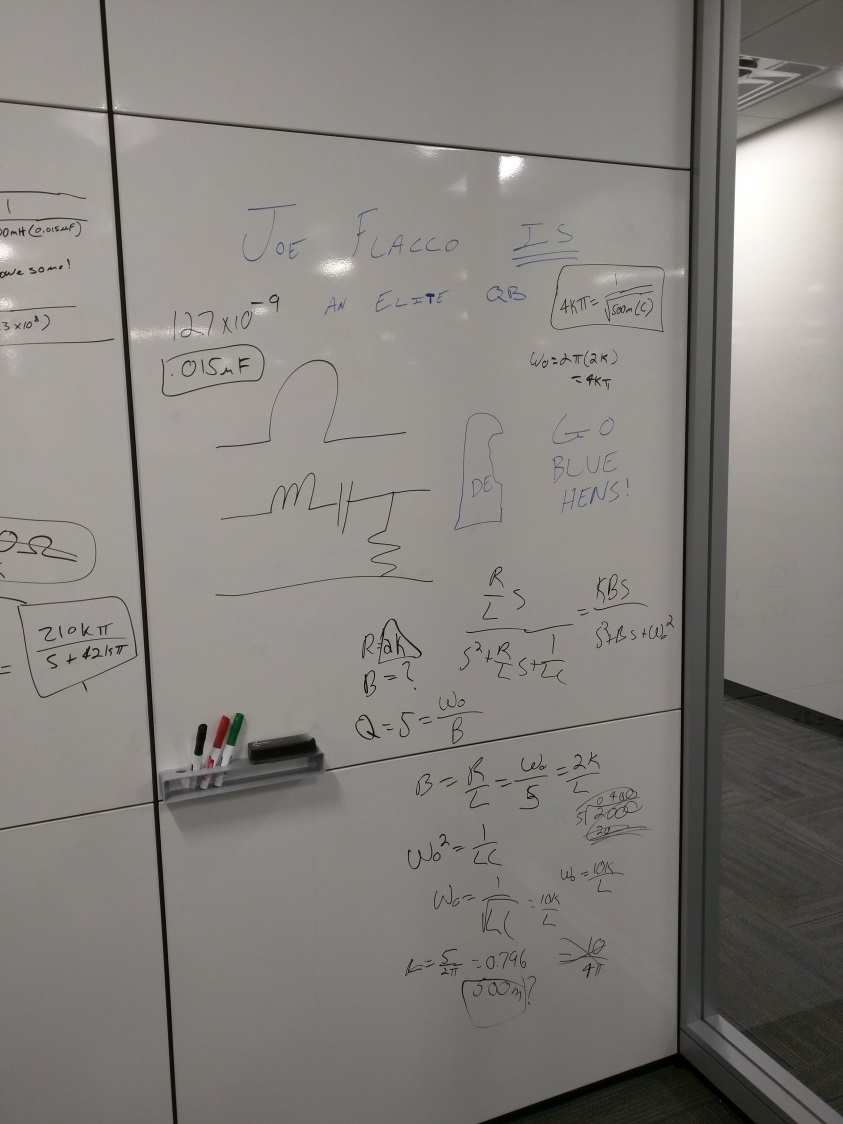 1
00mH(0.015uF)
owe some!
3x10⁸)
0Ω
210Kπ
= ―――
S+42Kπ
JOE FLACCO IS
AN ELITE QB
127x10⁻⁹
.015uF
4Kπ = 1/√500m(C)
ω₀=2π(2K)
=4Kπ
DE
GO
BLUE
HENS!
R/L S / S²+R/L S+1/LC = KBS / S²+BS+ω₀²
R=2K
B=?
Q=5=ω₀/B
B=R/L=ω₀/5=2K/L
0400
5)2000
20
ω₀²=1/LC
ω₀=10K/L
ω₀=1/√LC=10K/L
L=5/2π=0.796
=10/4π
500m?